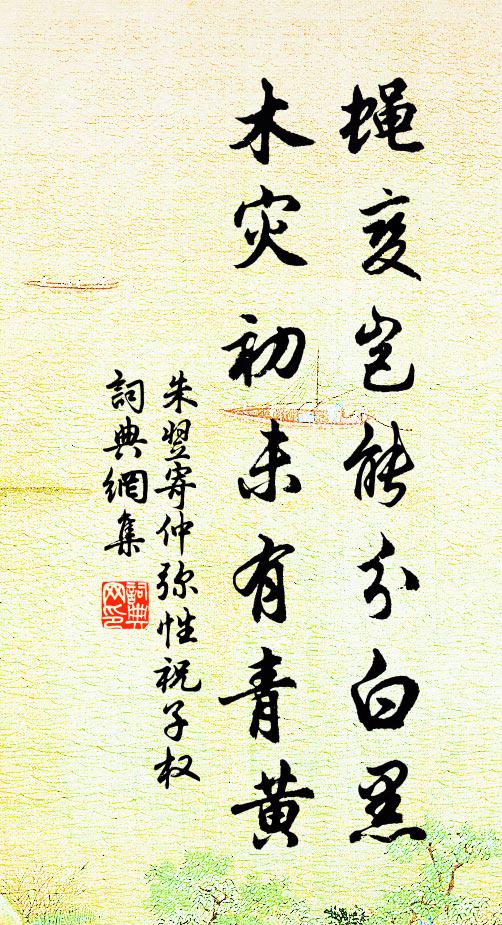 蝇变岂能分白黑
木灾初未有青黄
朱翌寄仲弥性祝子权
詞典網集
詞典
网印